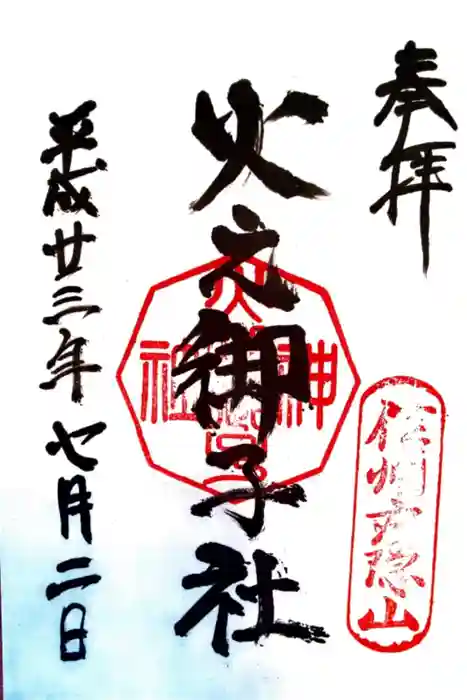 奉拝
信州戸隠山
火之御子社
平成廿三年七月二日